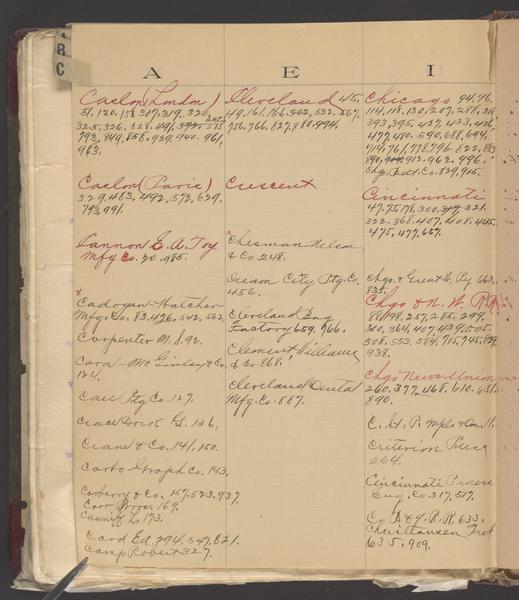 A B C
A
E
I
Caslon (London)
51, 120, 158, 307, 319, 320,
325, 326, 328, 491,
793, 849, 858, 929, 940, 961,
963.
Caslon (Paris)
329, 483, 492, 572, 629,
793, 991.
Cannon E. A. Toy
Mfg Co. 70, 985.
Cadogan-Hatcher
Mfg. Co. 83, 476, 542, 562.
Carpenter M. S. 92.
Card - McGinley & Co.
124.
Case Ptg Co. 127.
136.
Crane & Co. 141, 150.
Carbo-Graph Co. 143.
Carberry & Co. 157, 523, 937.
Carr Bros. 169.
Cauniff L. 173.
Card Ed. 294, 547, 821.
Camp Robert 327.
Cleveland 45,
49, 161, 166, 502, 532, 567,
756, 766, 827, 980, 994.
Crescent
Chesman Nelson
& Co. 248.
Cream City Ptg. Co.
456.
Cleveland Bag
Factory 659, 766.
Clement Williams
& Co. 868.
Cleveland Dental
Mfg. Co. 887.
Chicago 94, 96,
114, 118, 130, 207, 288, 315,
393, 395, 427, 433, 458,
477, 480, 590, 688, 694,
714, 761, 778, 796, 822, 883,
890, 904, 912, 962, 996.
Co. 829, 965.
Cincinnati
47, 75, 178, 300, 317, 321,
322, 368, 407, 408, 445,
475, 477, 657.
Chgo. & Great W. Ry 663,
835.
Chgo & N. W. Ry
88, 198, 257, 285, 299,
300, 364, 407, 439, 505,
508, 553, 584, 715, 745, 879,
938.
Chgo News Union
260, 377, 468, 610, 651,
890.
C. St. P. Mpls & Om. 11.
Criterion
264.
Cincinnati Process
Eng. Co. 317, 517.
C. & R. R. 633.
Christiansen Fred
635, 909.